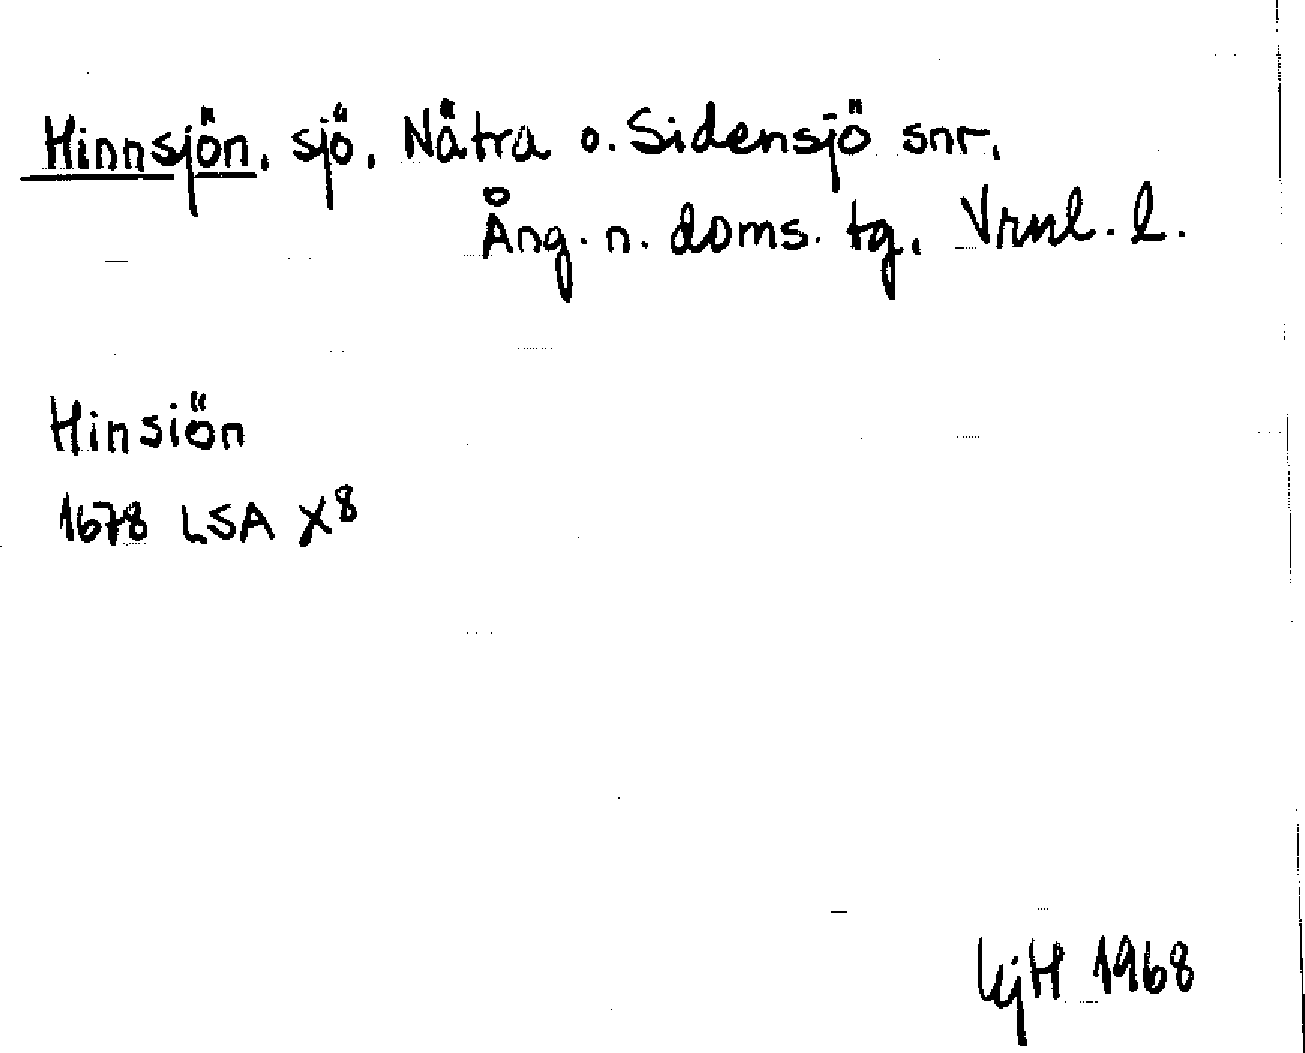 Hinnsjön. sjö. Nätra o. Sidensjö snr.
Ång. n. doms. tg. Vrnl. l.
Hinsiön
1678 LSA X⁸
1968